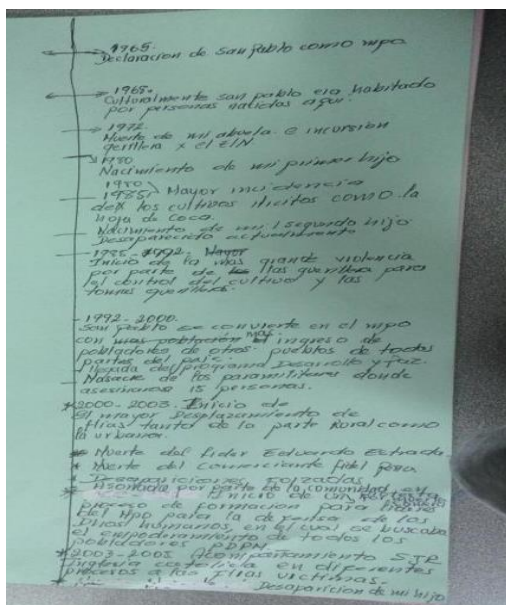 1965.
Declaracion de San Pablo como mpo
1968.
Culturalmente san pablo era habitado
por personas nacidas aqui.
1972.
Muerte de mi abuela. e incursion
gerillera x el ELN
1980
Nacimiento de mi primer hijo
1980
1985 Mayor incidencia
de los cultivos ilicitos como la
hoja de coca.
Nacimiento de mi segundo hijo
Desaparecido actualmente
1985-1992.
Inicio de la mas grande violencia
por parte de las guerrillas para
el control del cultivo y las
tomas guerrilleras.
1992-2000.
San Pablo se convierte en el mpo
con mas ingreso de
pobladores de otros pueblos de todas
partes del pais.
llegada del programa Desarrollo y Paz.
Masacre de los paramilitares donde
asesinaron 15 personas.
2000-2003. Inicio de
el mayor Desplazamiento de
flias tanto de la parte Rural como
la urbana.
Muerte del lider Eduardo Estrada
Muerte del comerciante Fidel
Desapariciones forzadas
por parte de la comunidad en
Inicio de un
proceso de formacion para lideres
del Mpo para la defensa de los
Dhos humanos en el cual se buscaba
el empoderamiento de todos los
pobladores PDPM
2003-2005 Acompañamiento SJR
Iglesia catolica en diferentes
procesos a las flias victimas.
Desaparicion de mi hijo